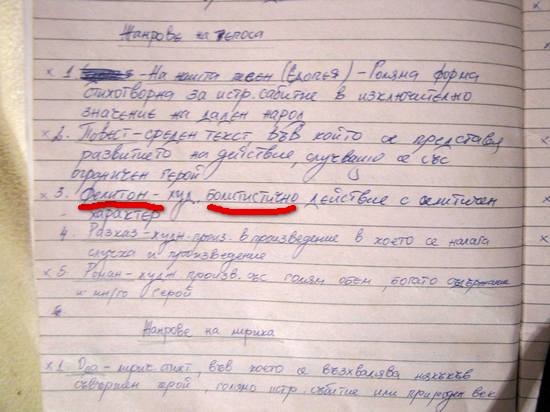 Жанрове на епоса
х 1. - На нашта песен (Епопея) - Голяма форма
стихотворна за истр. сабитие в изключително
значение на даден народ
х 2. Повест - среден текст във който се представя
развитието на действие, случващо се със
ограничен герой
х 3. Фелитон - худ. болитистично действие с сатиричен
характер
4. Разказ - худж. произ. в произведение в което се налага
случка и произведение
х 5. Роман - худж произв. със голям обем, богато съдържание
и много герой
Жанрове на лирика
х 1. Ода - лирич. стих, във което се възхвалява някъкъв
съвършен герой, голямо истр. събитие или природен век